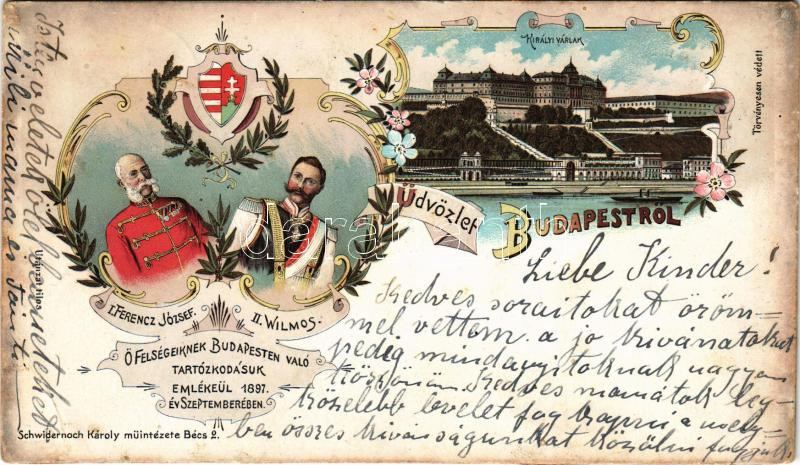 KIRÁLYI VÁRLAK
Törvényesen védett
Üdvözlet
BUDAPESTRŐL
I. FERENCZ JÓZSEF.
II. WILMOS.
Ő FELSÉGEIKNEK BUDAPESTEN VALÓ
TARTÓZKODÁSUK
EMLÉKEÜL 1897.
ÉV SZEPTEMBERÉBEN.
Schwidernoch Károly müintézete Bécs 2.
Utánzat tilos
Liebe Kinder!
Kedves soraitokat öröm-
mel vettem, a jo kivánatokat
pedig mindnyájtoknak nagyon
köszönöm. Kedves mamátok leg-
közelebb levelet fog kapni a mely-
ben összes kivánságunkat közölni fogjuk.
Isten
ölel
mama és
darabanth